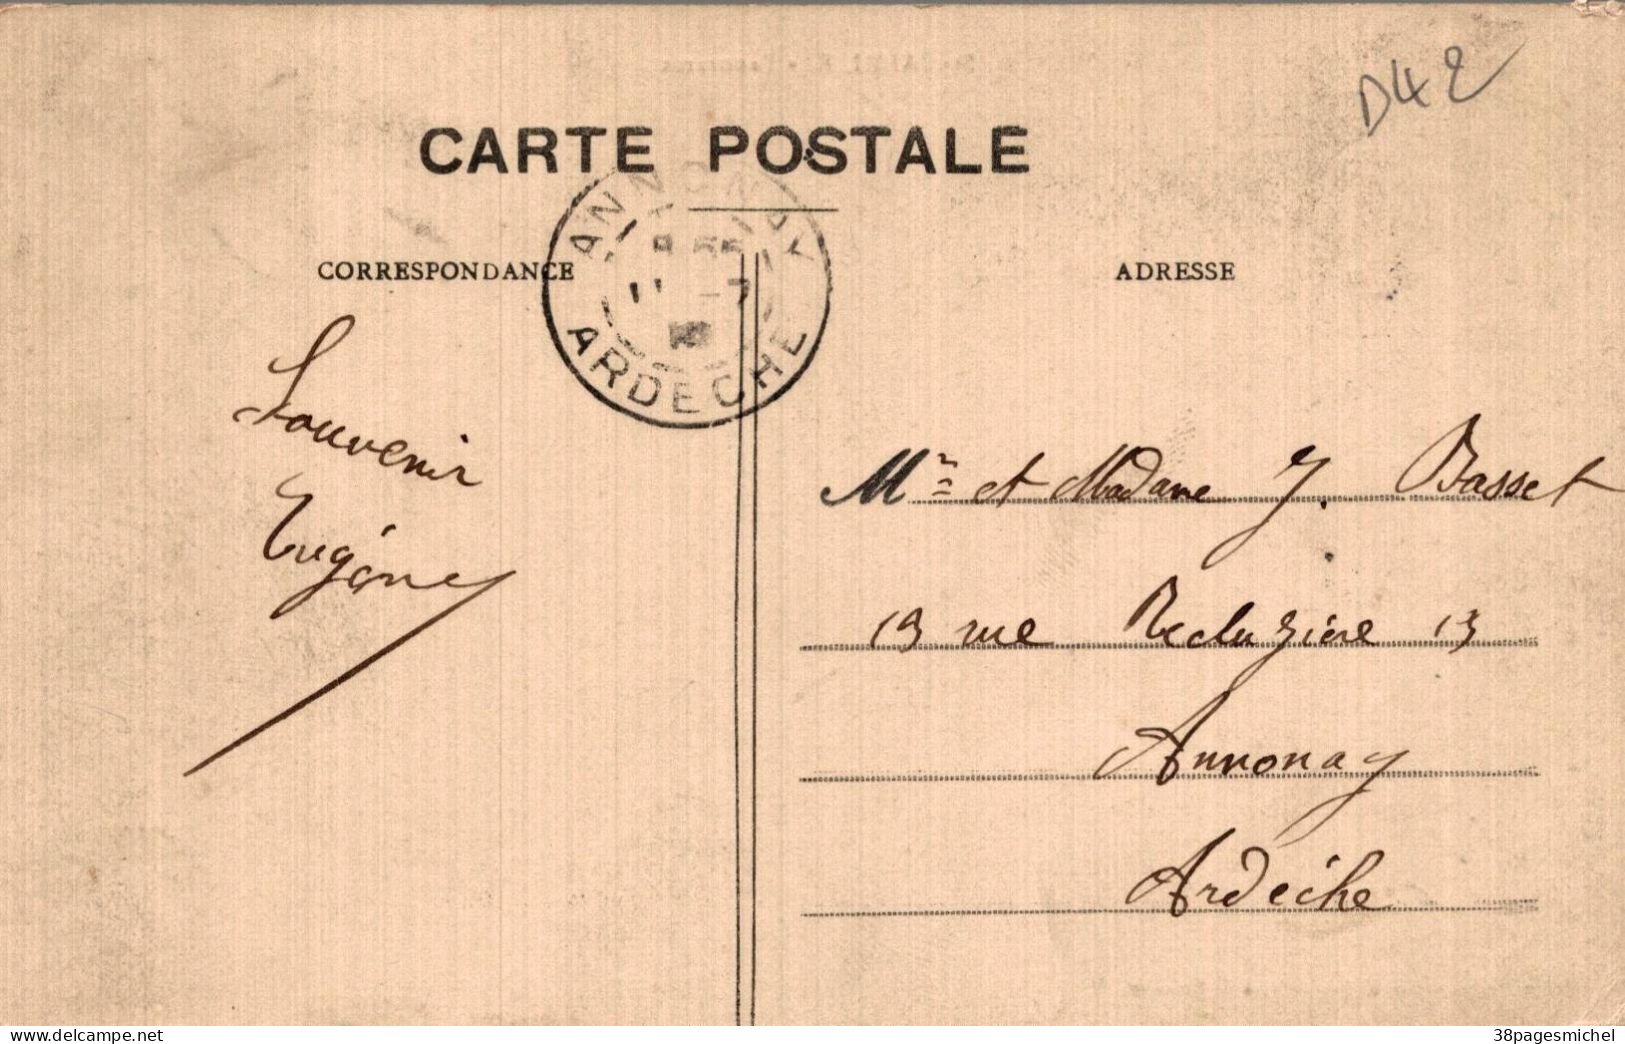 D42
CARTE POSTALE
ANNONAY
11 -7
ARDECHE
CORRESPONDANCE
ADRESSE
Souvenir
Eugène
Mr et Madame J. Basset
13 rue Recluzière 13
Annonay
Ardèche
www.delcampe.net
38pagesmichel